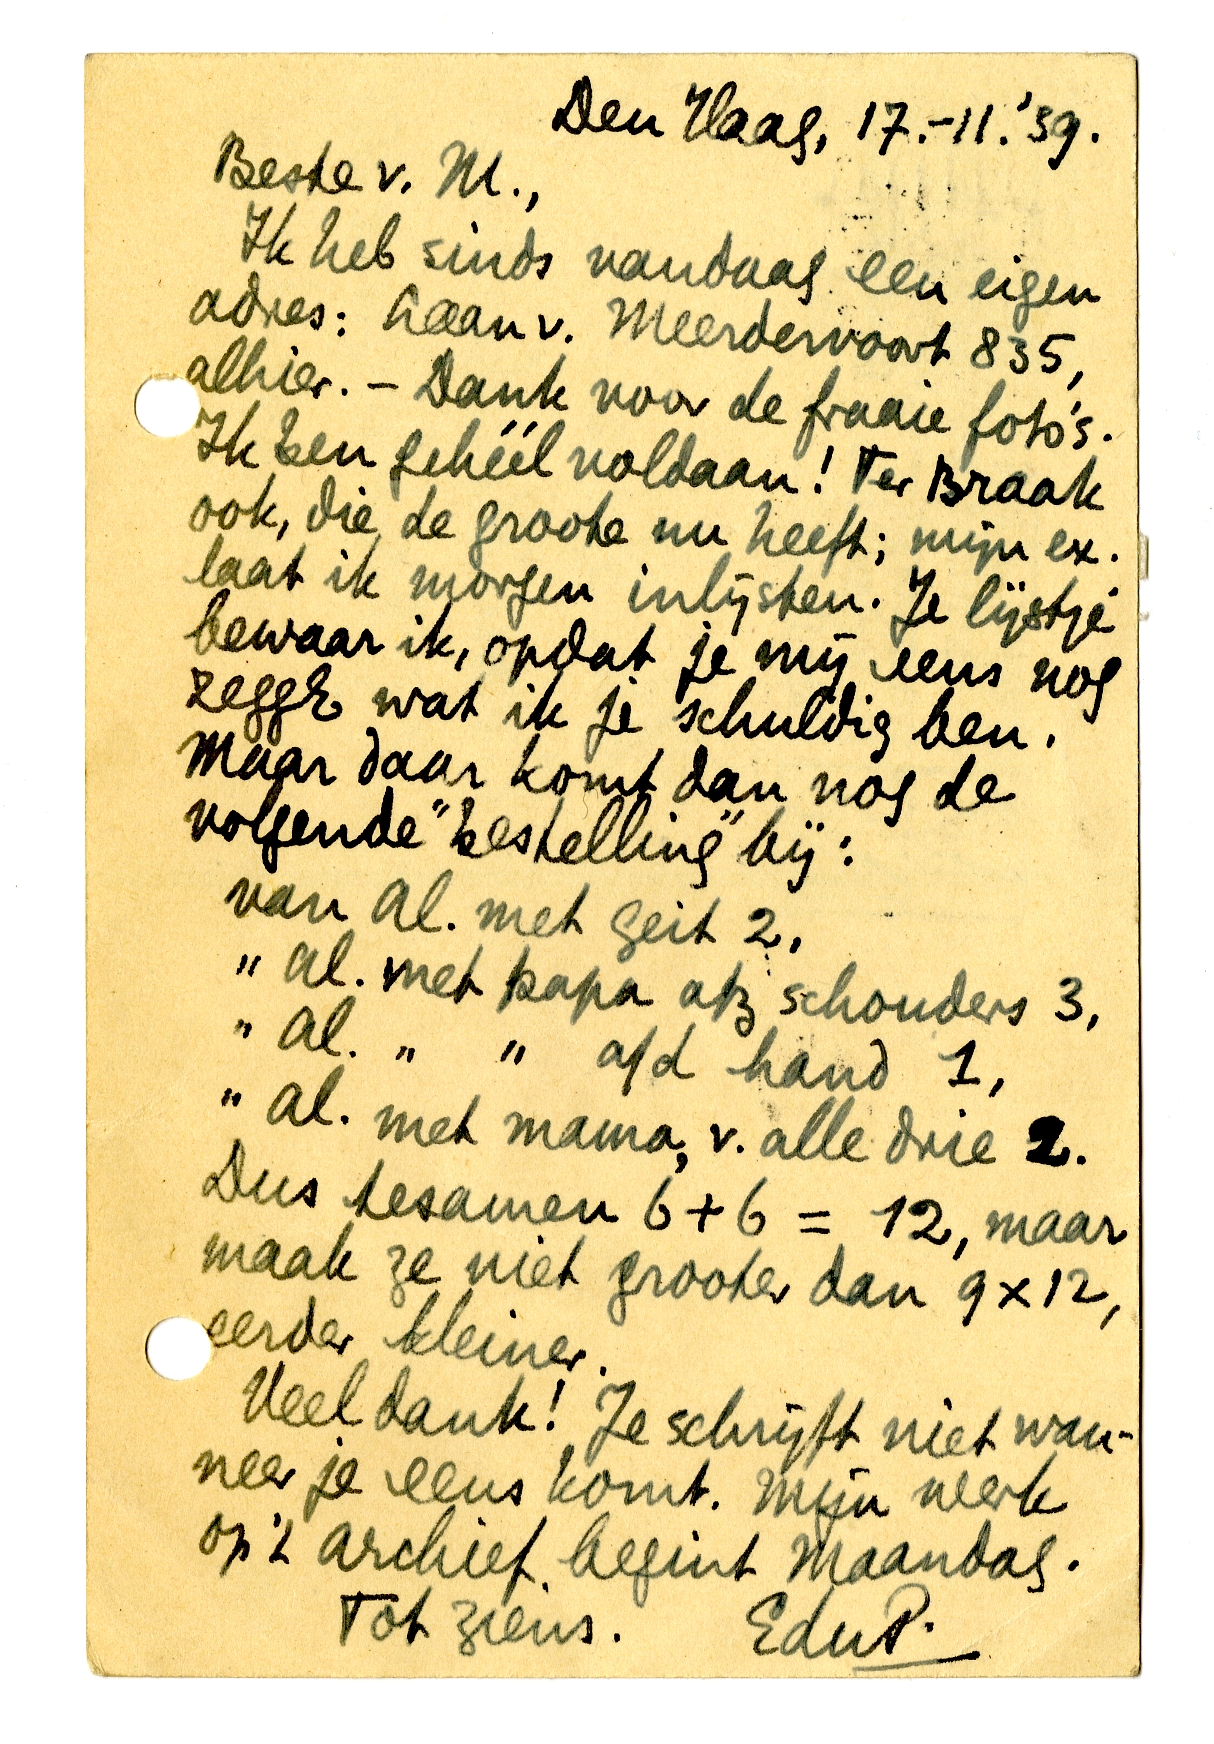 Den Haag, 17.-11.'39.
Beste v. M.,
Ik heb sinds vandaag een eigen
adres: Laan v. Meerdervoort 835,
alhier. – Dank voor de fraaie foto's.
Ik ben gehéél voldaan! Ter Braak
ook, die de groote nu heeft; mijn ex.
laat ik morgen inlijsten. Je lijstje
bewaar ik, opdat je mij eens nog
zegge wat ik je schuldig ben.
Maar daar komt dan nog de
volgende "bestelling" bij:
van Al. met geit 2,
" Al. met papa op z. schouders 3,
" Al. " " a/d hand 1,
" Al. met mama, v. alle drie 2.
Dus tesamen 6+6 = 12, maar
maak ze niet grooter dan 9x12,
eerder kleiner.
Veel dank! Je schrijft niet wan-
neer je eens komt. Mijn werk
op 't archief begint Maandag.
Tot ziens. EduP.